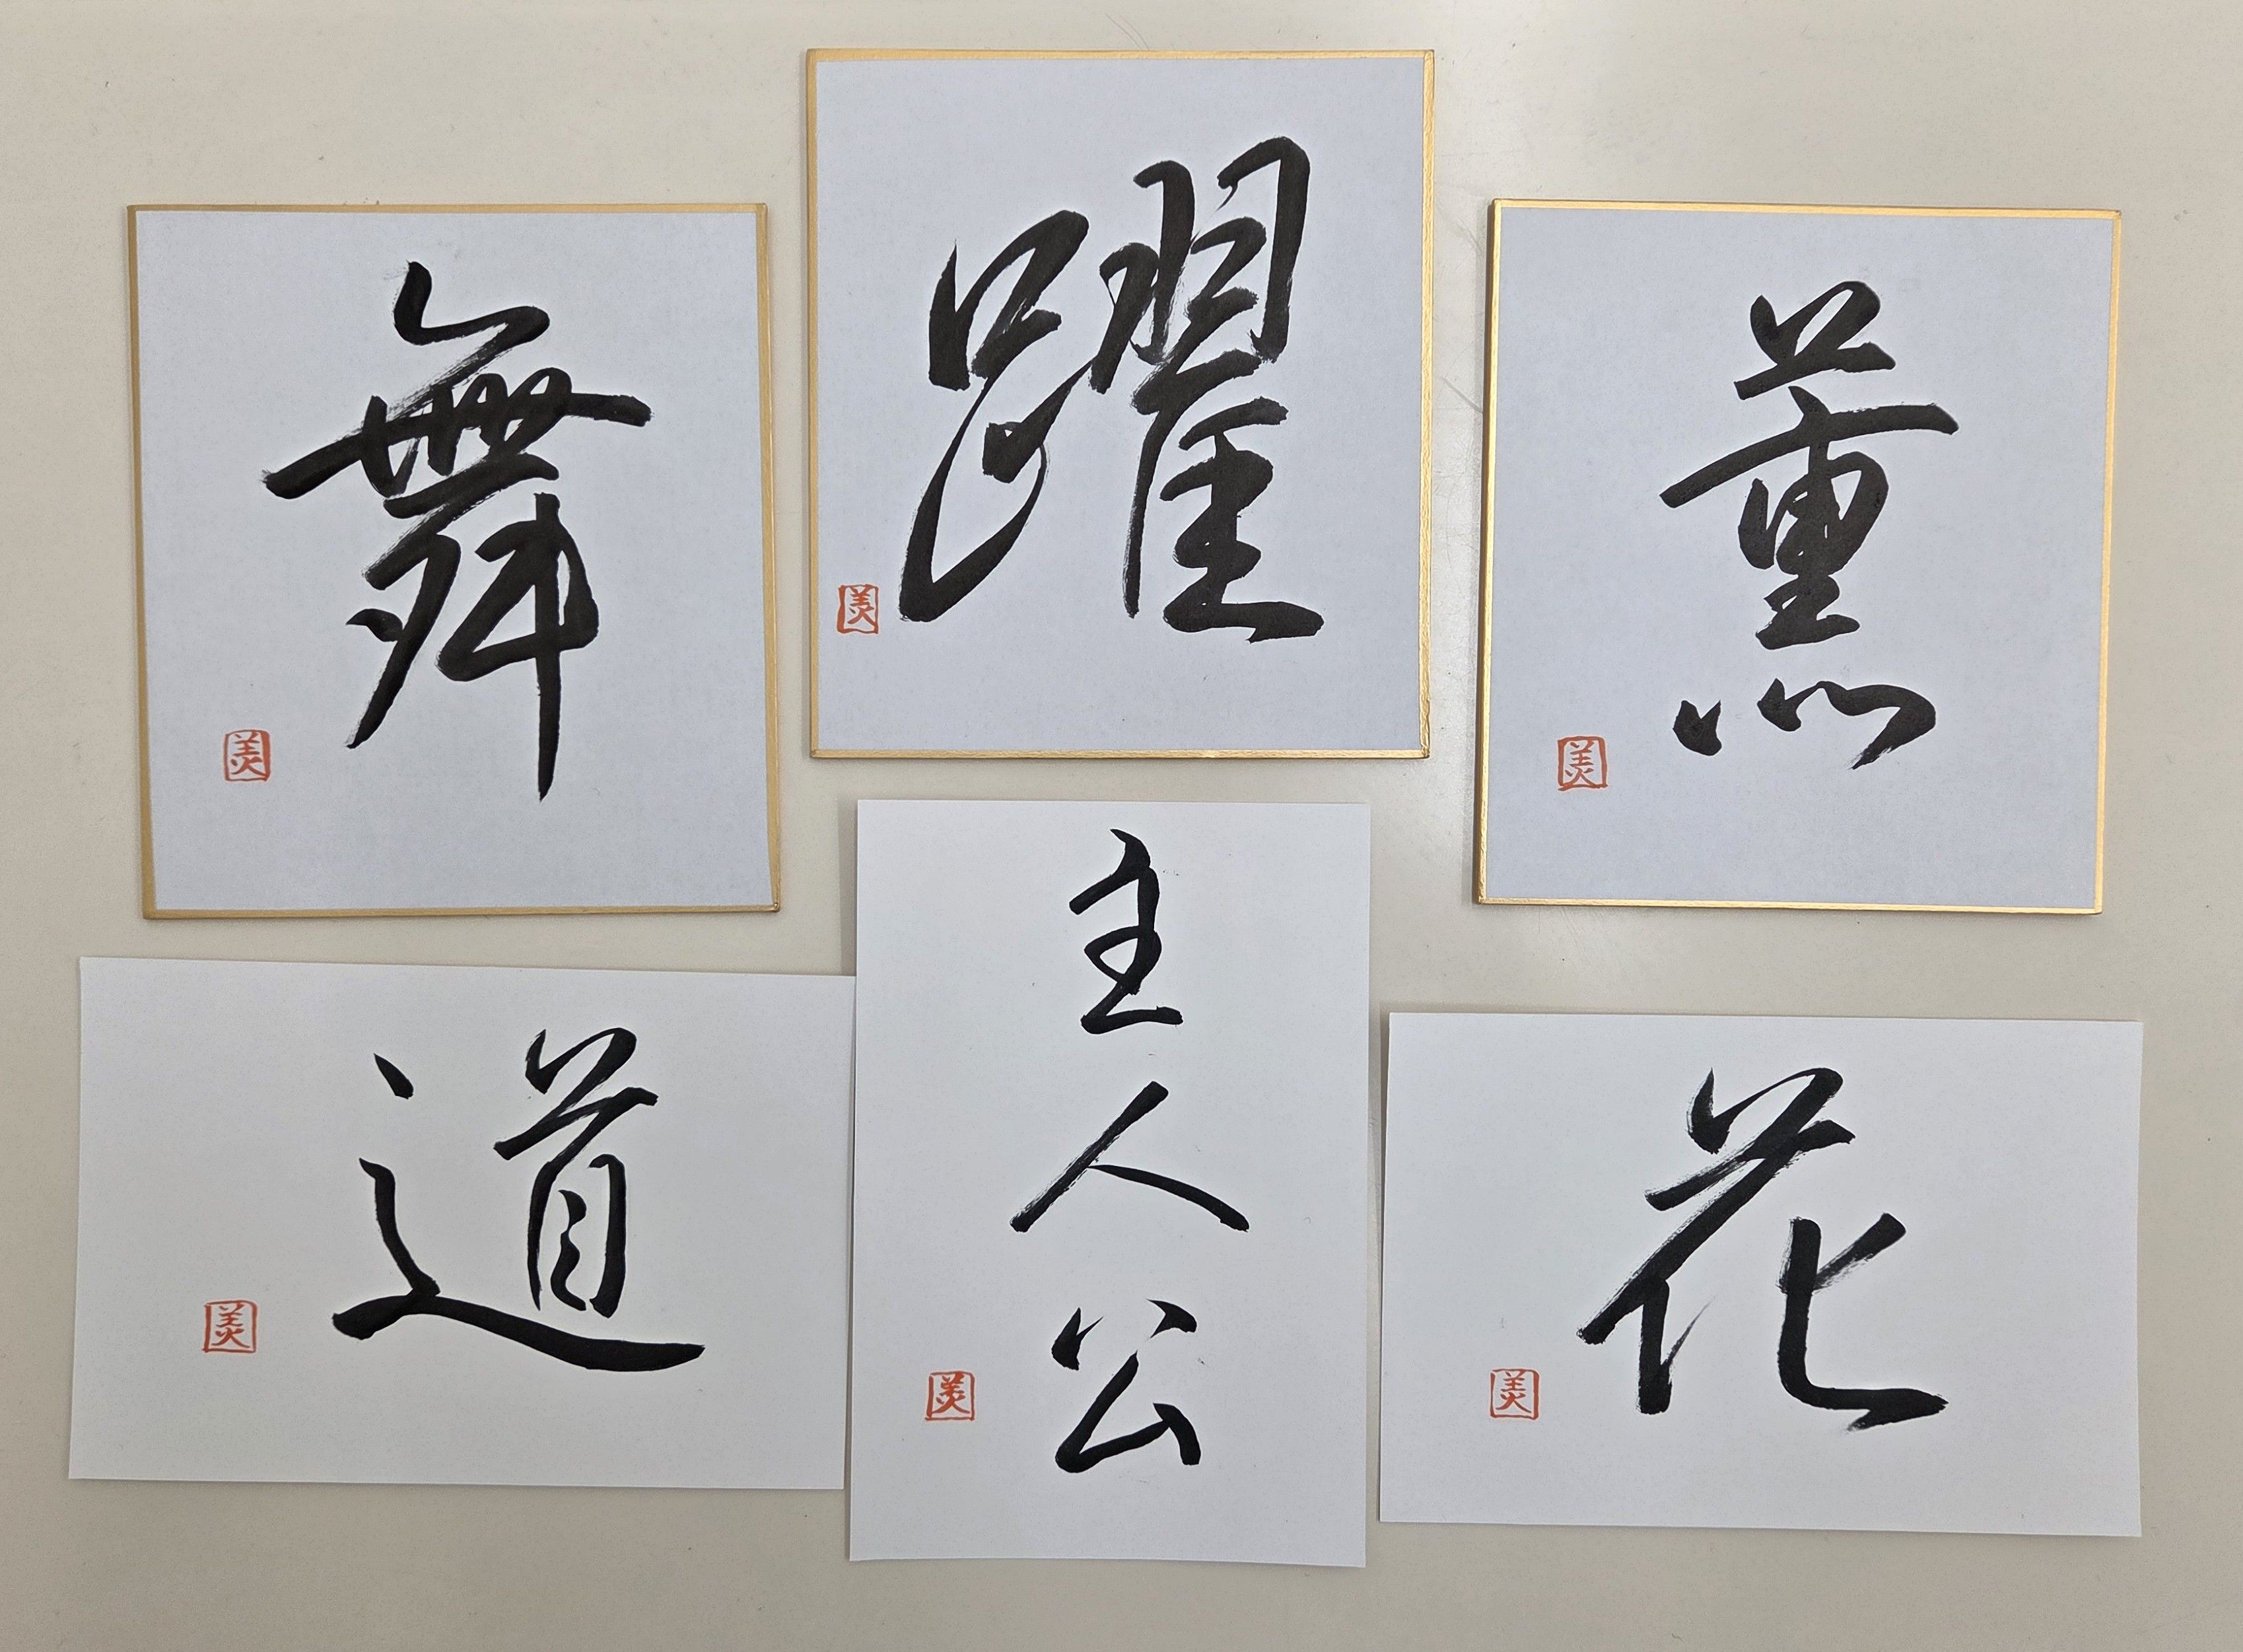 舞
美
躍
美
薫
美
道
美
主人公
美
花
美